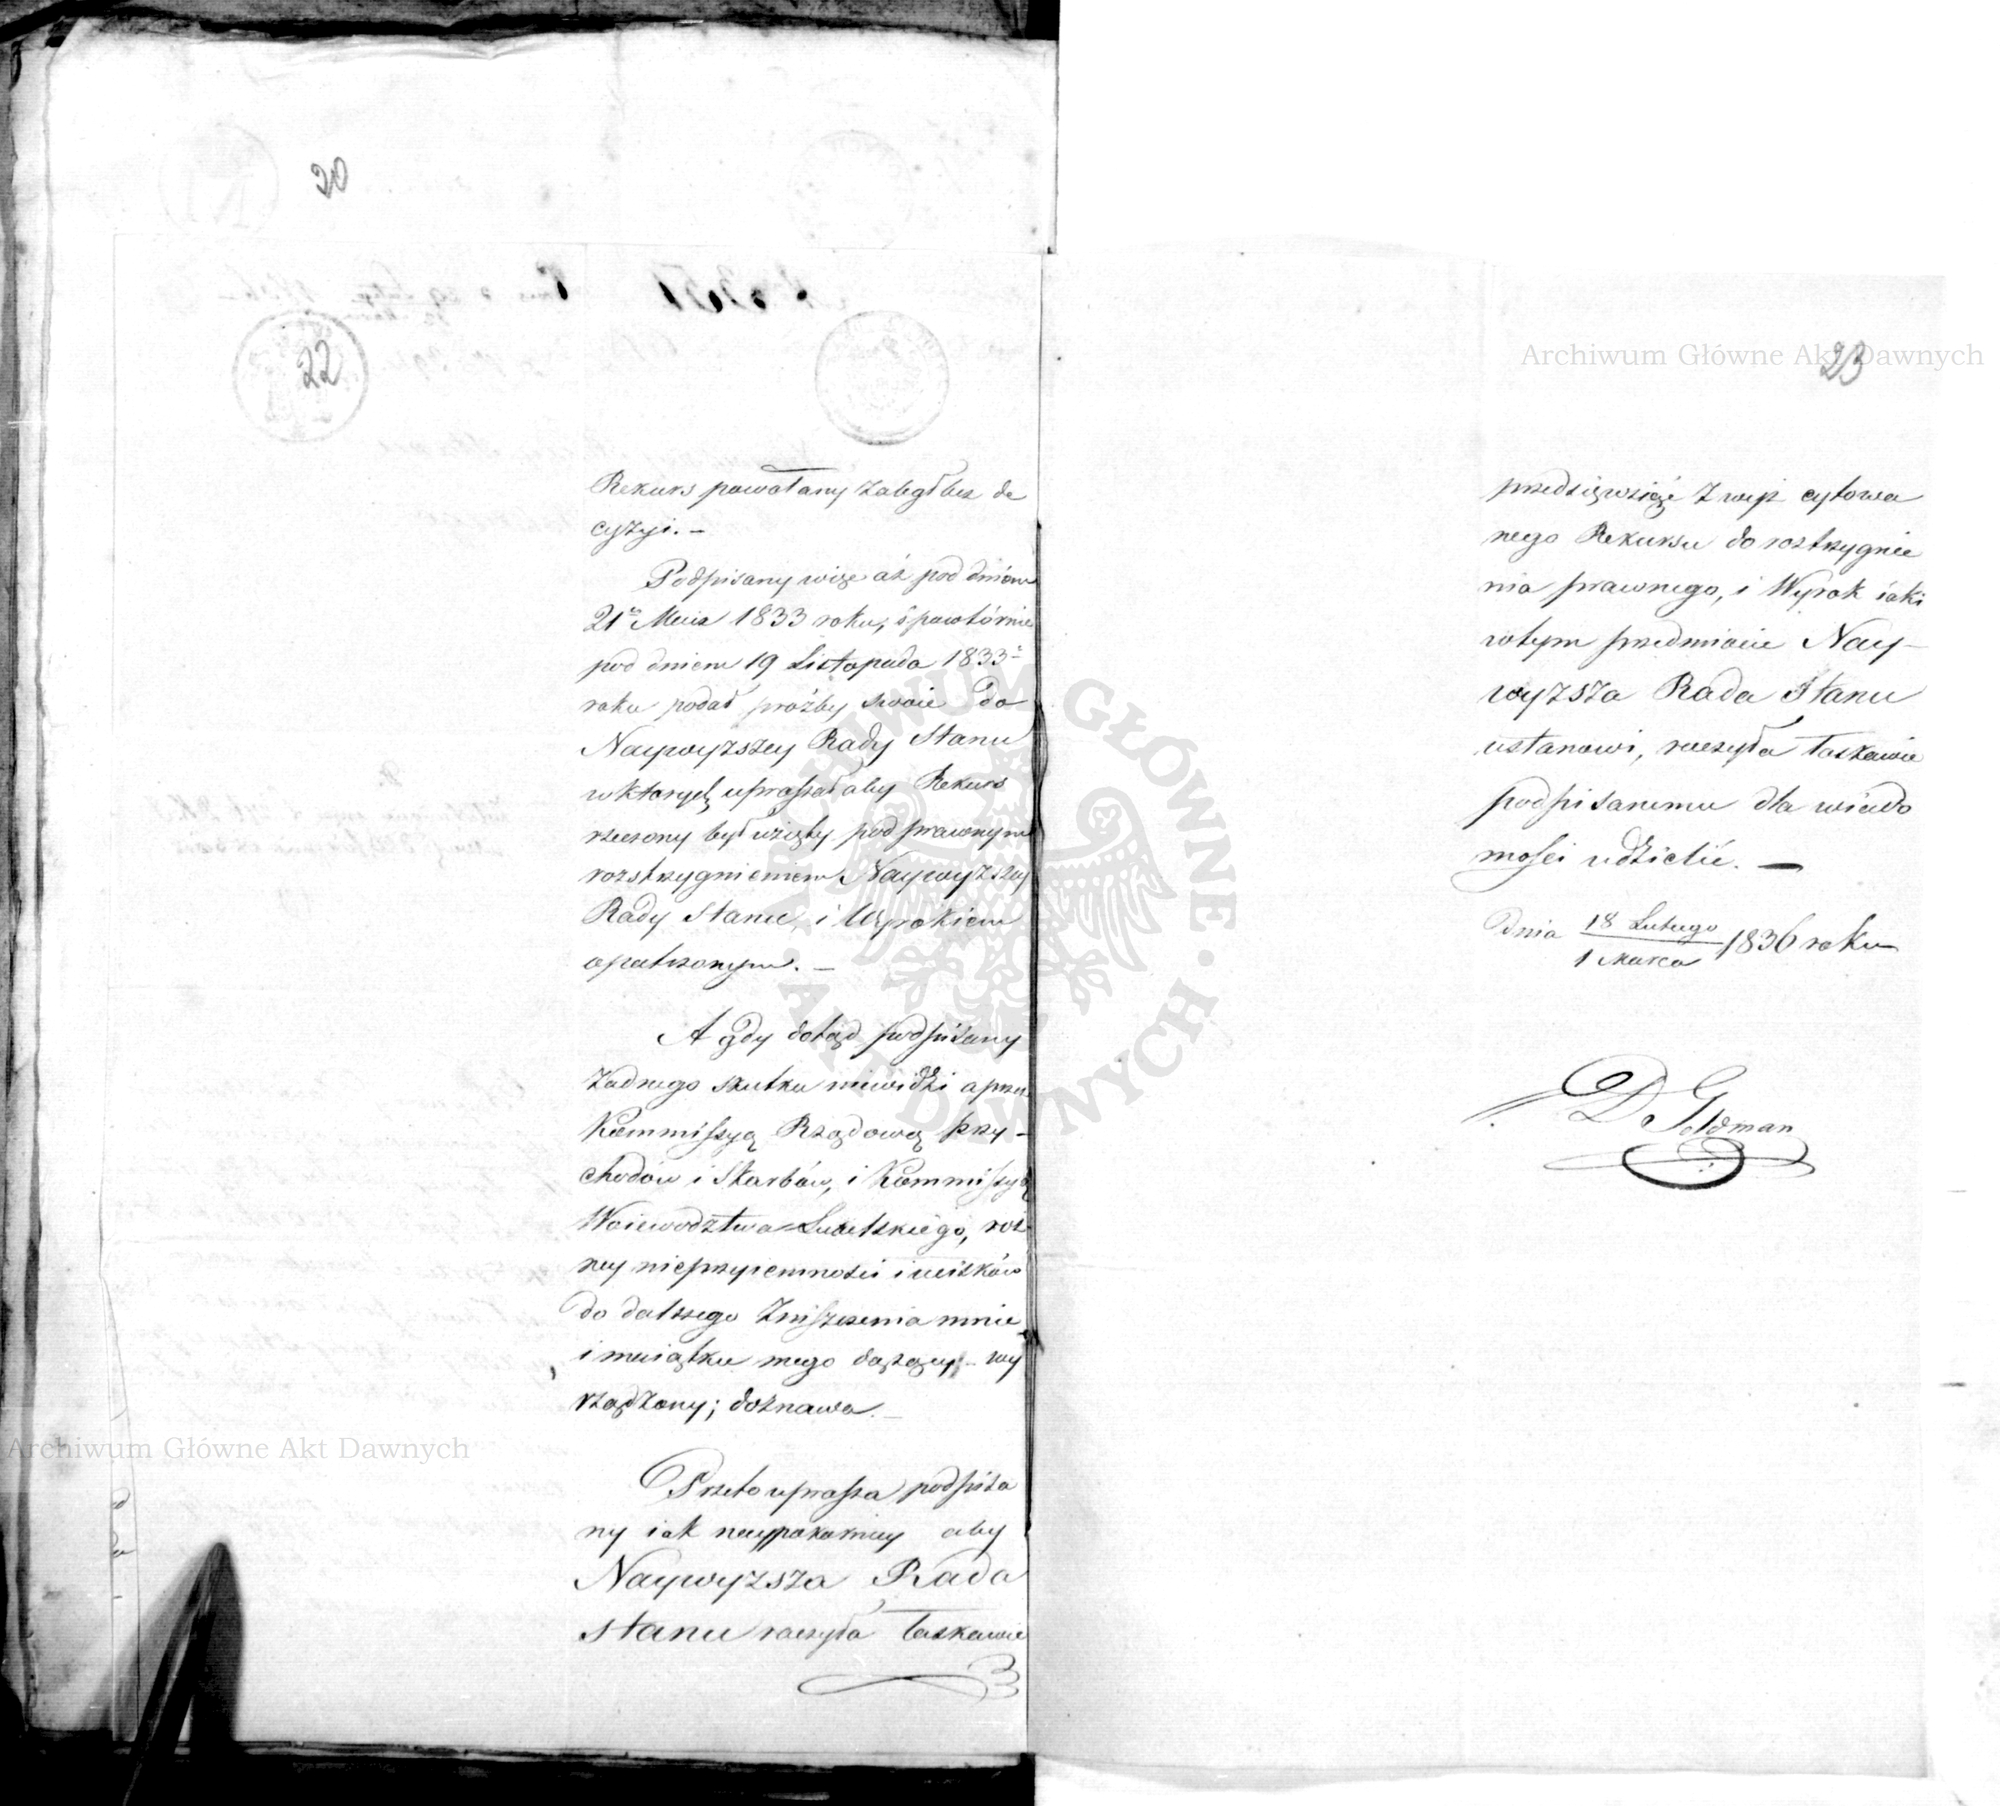 20
22
Rekurs powołany zaległ bez de
cyzyi. –
Podpisany więc aż pod dniem
21º Maia 1833 roku, i powtórnie
pod dniem 19 Listopada 1833º
roku podał proźby swoie do
Naywyzszey Rady Stanu
w ktorych upraszał aby Rekurs
rzeczony był wzięty pod prawnym
rozstrzygnieniem Naywyzszey
Rady Stanu, i Wyrokiem
opatrzonym. –
A gdy dotąd podpisany
zadnego skutku niewidzi a przez
Kommissyą Rządową Przy-
chodów i Skarbów, i Kommissyą
Woiewodztwa Lubelskiego, roż
ney nieprzyiemności i ucisków
do dalszego zniszczenia mnie
i maiątku mego dążący wy
rządzony; doznawa. –
Przeto uprasza podpisa
ny iak naypokorniey aby
Naywyzsza Rada
Stanu raczyła łaskawie
23
przedsięwziąść zwyż cytowa
nego Rekursu do rostrzygnie
nia prawnego, i Wyrok iaki
w tym przedmiocie Nay-
wyzsza Rada Stanu
ustanowi, raczyła łaskawie
podpisanemu dla wiado
mości udzielić. –
Dnia 18 Lutego / 1 Marca 1836 roku
D. Goldman
Archiwum Główne Akt Dawnych
Archiwum Główne Akt Dawnych
ARCHIWUM GŁÓWNE · AKT DAWNYCH ·